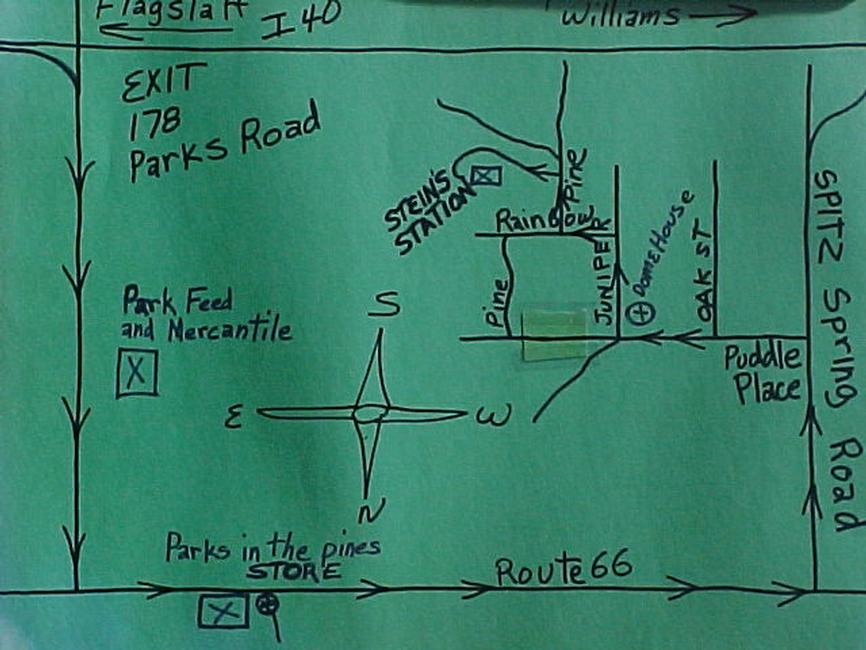 Flagstaff I 40
Williams
EXIT
178
Parks Road
Pine
STEIN'S
STATION
Rainbow
JUNIPER
Dome House
OAK ST
SPITZ Spring Road
Pine
Park Feed
and Mercantile
X
S
Puddle
Place
E
W
N
Parks in the pines
STORE
Route 66
X